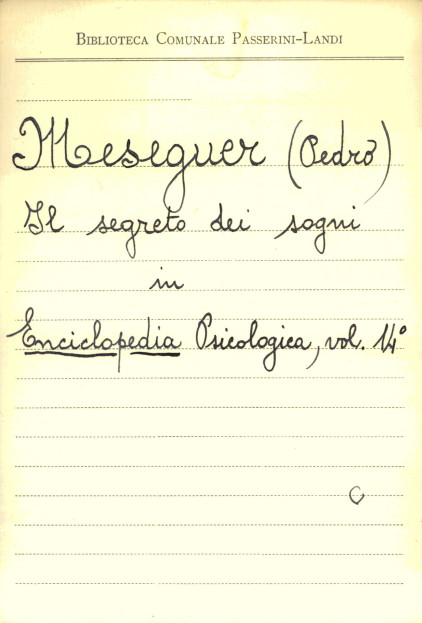 BIBLIOTECA COMUNALE PASSERINI-LANDI
Meseguer (Pedro)
Il segreto dei sogni
in
Enciclopedia Psicologica, vol. 14°
C